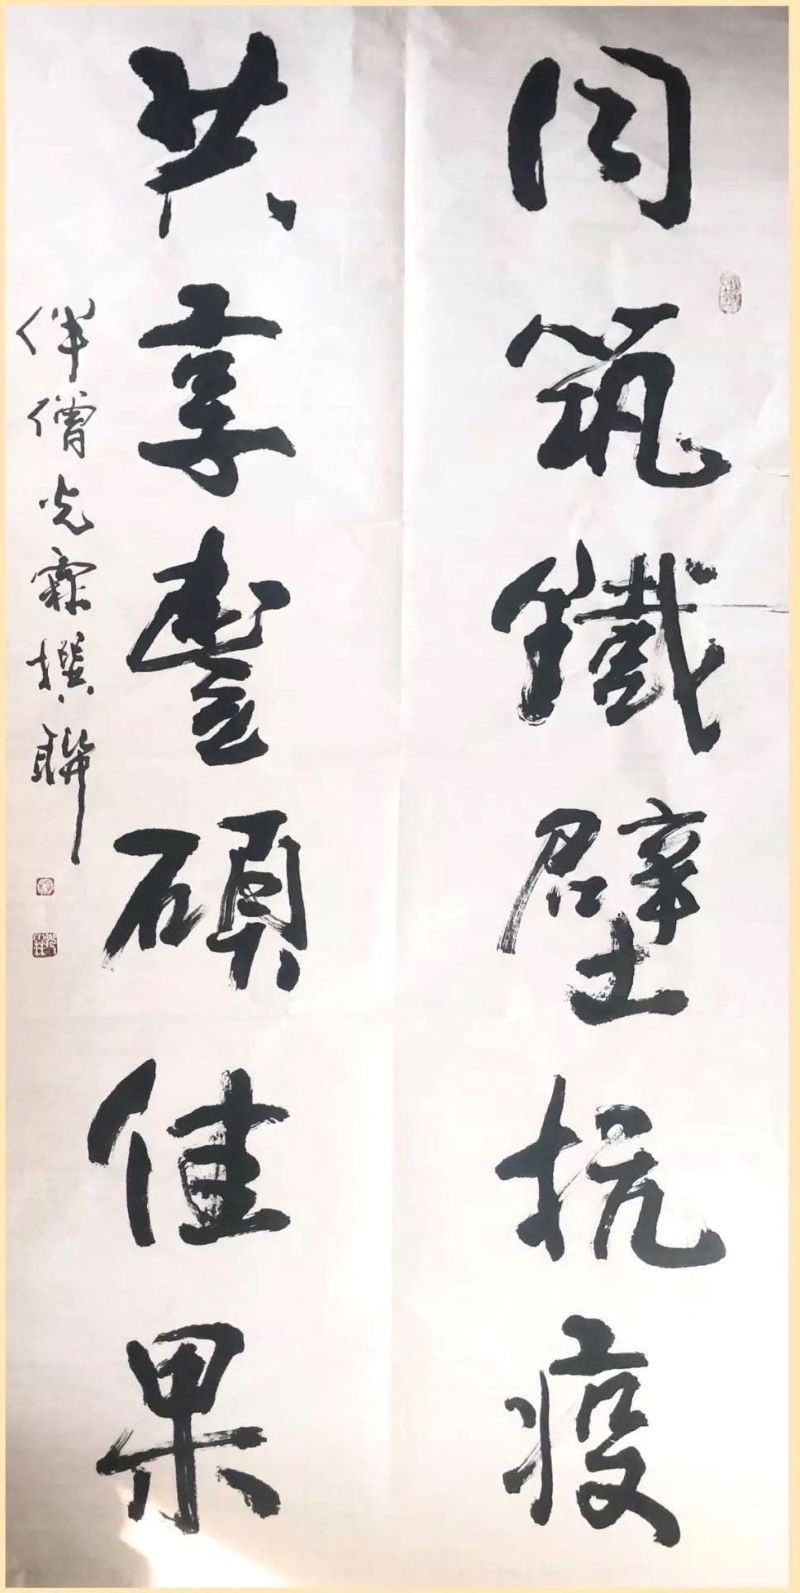 同筑鐵壁抗疫
共享豐碩佳果
伴僧光霖撰聯